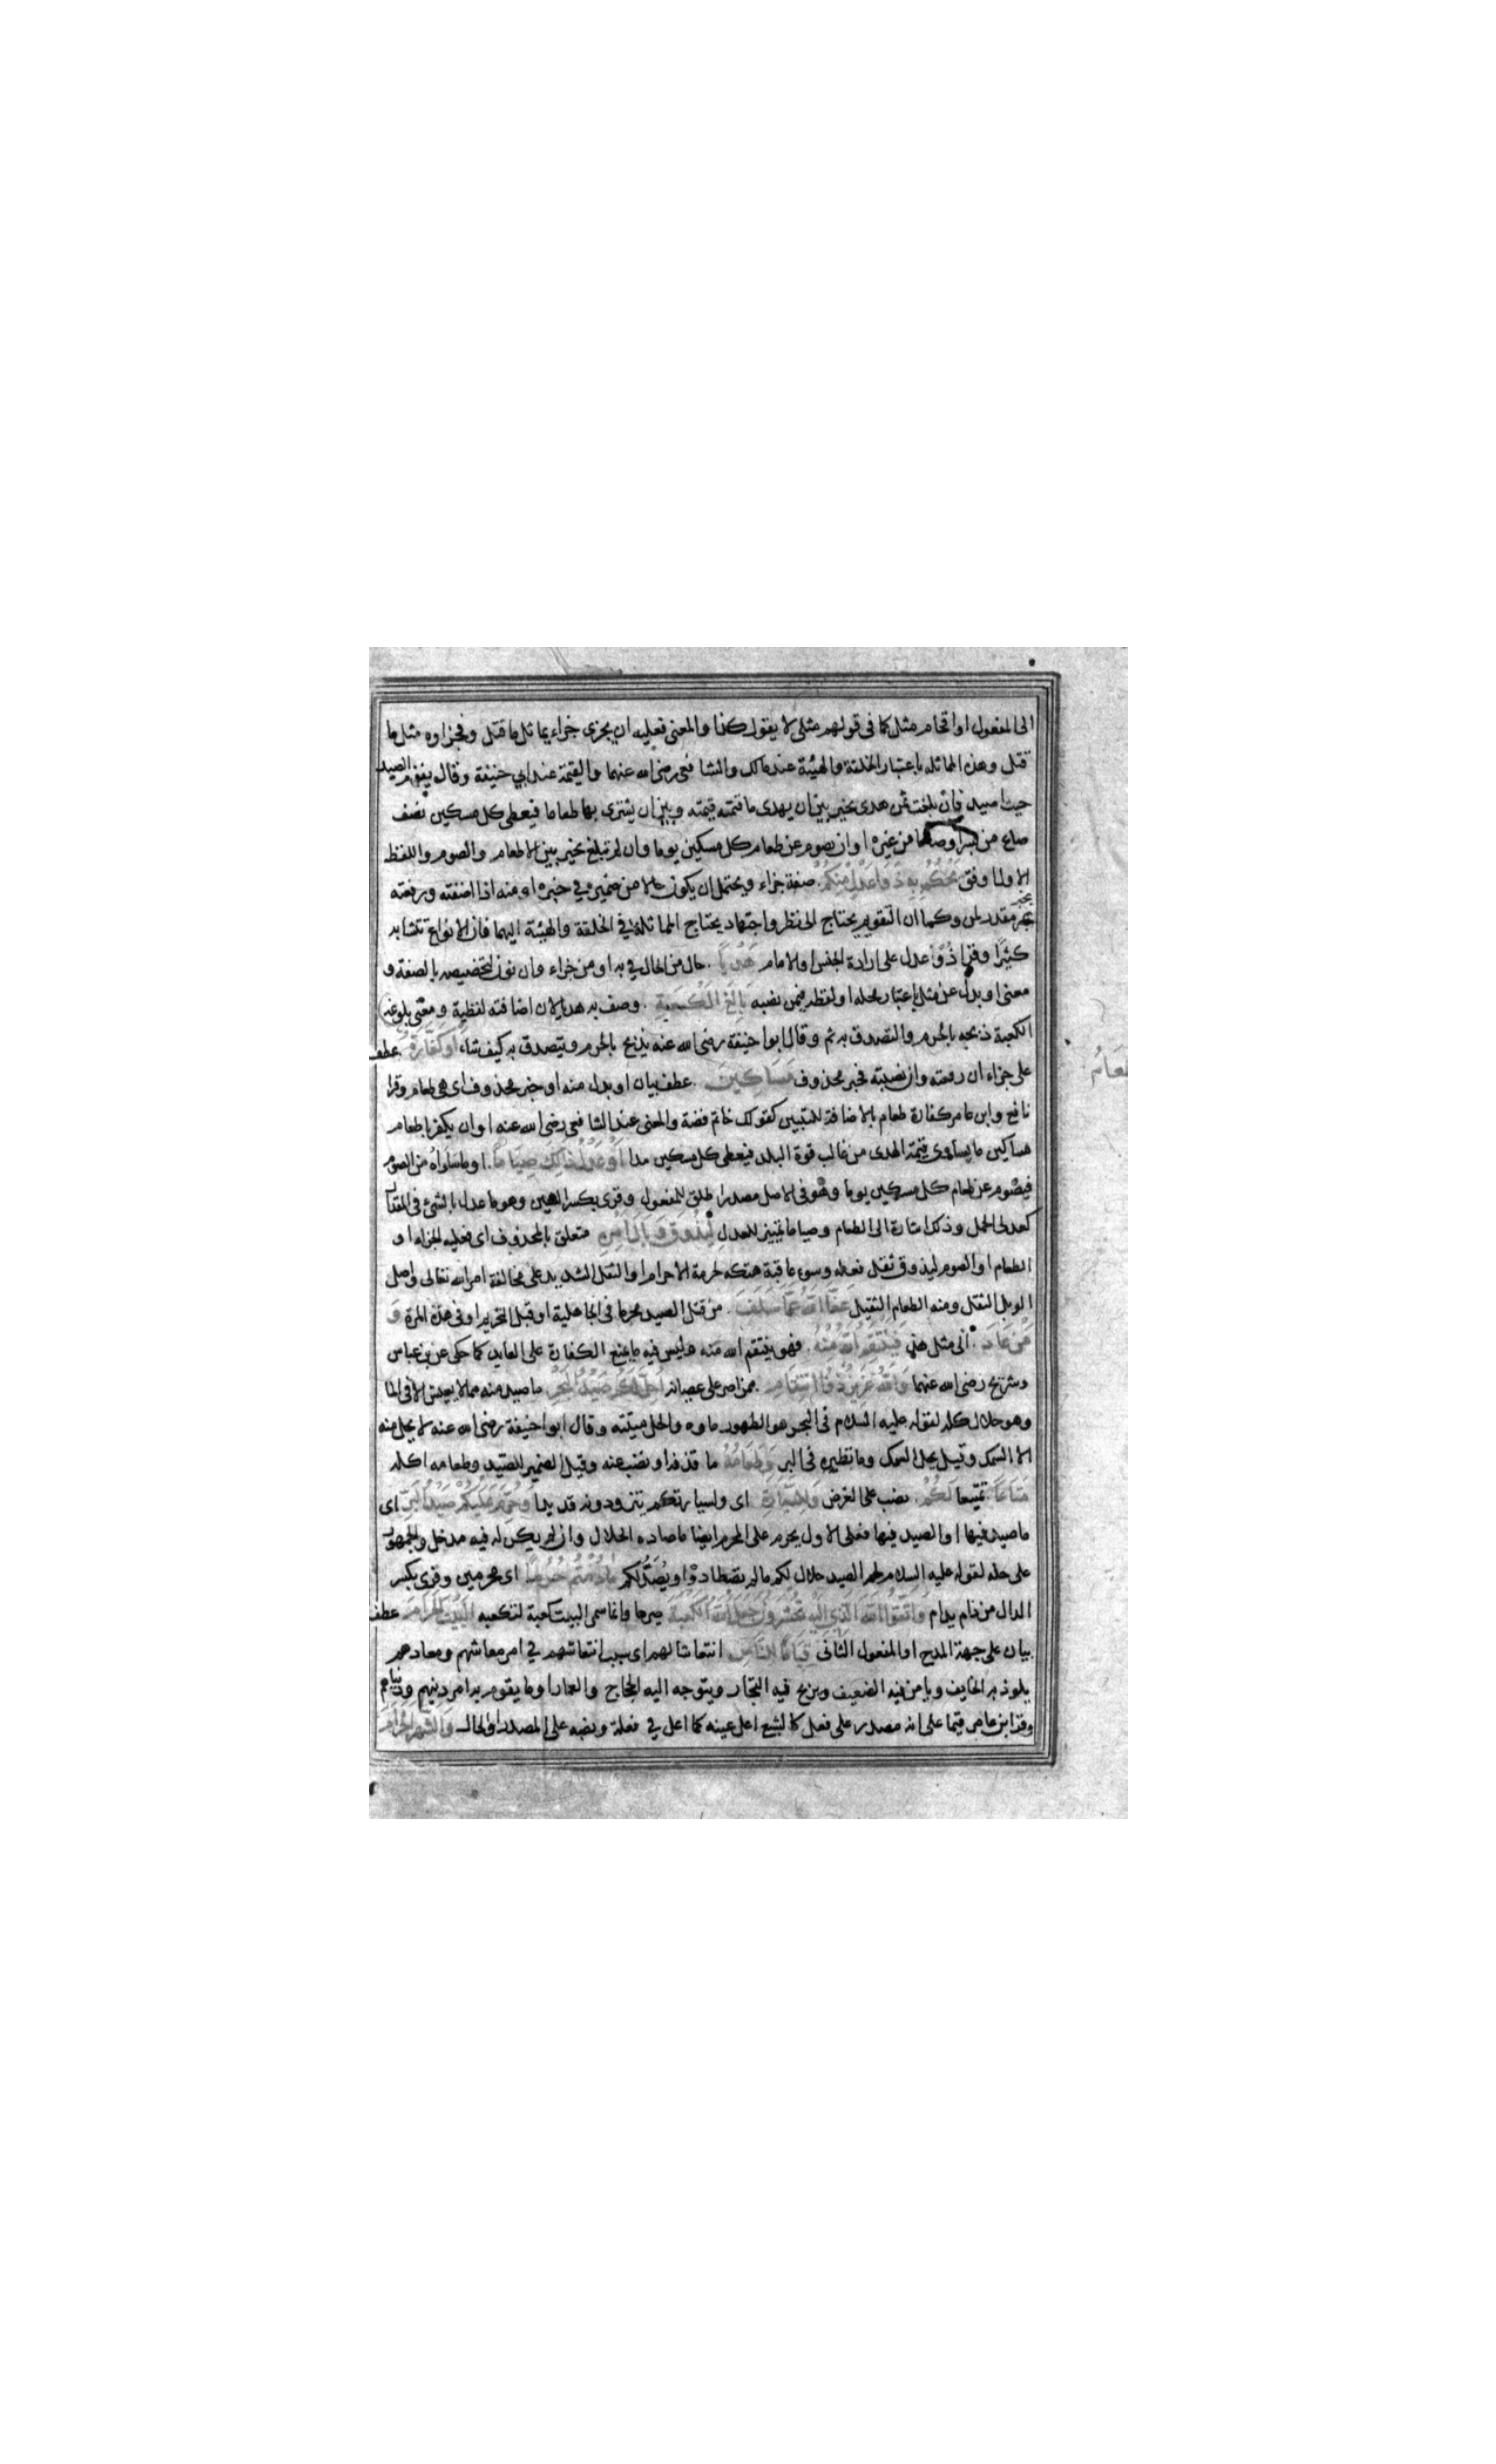 الى المفعول او اقحام مثل كما فى قولهم مثلى لا يقول كذا والمعنى فعليه ان يجزى جزاء يماثل ما قتل وفجزاوه مثل ما
قتل وهذه المماثلة باعتبار الخلقة والهيئة عند مالك والشافعى رضى الله عنهما والقيمة عند ابي حنيفة وقال يقوم الصيد
حيث صيد فان بلغت ثمن هدى يخير بين ان يهدى ما قيمته قيمته وبين ان يشترى بها طعاما فيعطى كل مسكين نصف
صاع من بر او صاعا من غيره او ان يصوم عن طعام كل مسكين يوما وان لم تبلغ يخير بين الاطعام والصوم واللفظ
الاول اوفق يَحْكُمُ بِهِ ذَوَا عَدْلٍ مِنْكُمْ صفة جزاء ويحتمل ان يكون حالا من ضميره في خبره او منه اذا اضفته ورفعته
بخبر مقدر لمن وكما ان التقويم يحتاج الى نظر واجتهاد يحتاج المماثلة في الخلقة والهيئة اليها فان الانواع تتشابه
كثيرًا وقرا ذُو عدل على ارادة الجنس او الامام هَدْيًا حال من الحال في به او من جزاء وان نون لتخصيصه بالصفة و
معنى او بدل عن مثل باعتبار محله او لفظه فيمن نصبه بَالِغَ الْكَعْبَةِ وصف به هديا لان اضافته لفظية ومعنى بلوغه
الكعبة ذبحه بالحرم والتصدق به ثم وقال ابوا حنيفة رضى الله عنه يذبح بالحرم ويتصدق به كيف شاء اَوْ كَفَّارَةٌ عطف
على جزاء ان رفعته وان نصبته فخبر محذوف مَسَاكِينَ عطف بيان او بدل منه او خبر محذوف اى هى طعام وقرا
نافع وابن عامر كفارة طعام بالاضافة للتبيين كقولك خاتم فضة والمعنى عند الشافعى رضى الله عنه او ان يكفر باطعام
مساكين ما يساوى قيمة الهدى من غالب قوة البلد فيعطى كل مسكين مدا اَوْ عَدْلُ ذَلِكَ صِيَامًا او ما ساواه من الصوم
فيصوم عن طعام كل مسكين يوما وهو فى الاصل مصدر اطلق للمفعول وقرى بكسر العين وهو ما عدل بالشئ فى المقدار
كعدل الحمل وذلك اشارة الى الطعام وصياما تمييز للعدل لِيَذُوقَ وَبَالَ اَمْرِهِ متعلق بالمحذوف اى فعليه الجزاء او
الطعام او الصوم ليذوق ثقل فعله وسوء عاقبة هتكه لحرمة الاحرام او الثقل الشديد على مخالفة امر الله تعالى واصل
الوبل الثقل ومنه الطعام الثقيل عَفَا اللهُ عَمَّا سَلَفَ من قتل الصيد محرما فى الجاهلية او قبل التحريم او فى هذه المرة وَ
مَنْ عَادَ الى مثل هذا فَيَنْتَقِمُ اللهُ مِنْهُ فهو ينتقم الله منه وليس فيه ما يمنع الكفارة على العايد كما حكى عن بن عباس
وشريح رضى الله عنهما وَاللهُ عَزِيزٌ ذُو انْتِقَامٍ ممن اصر على عصيانه اُحِلَّ لَكُمْ صَيْدُ الْبَحْرِ ما صيد منه مما لا يعيش الا فى الما
وهو حلال كله لقوله عليه السلام فى البحر هو الطهور ماوه والحل ميتته وقال ابوا حنيفة رضى الله عنه لا يحل منه
الا السمك وقيل يحل السمك وما نظيره فى البر وَطَعَامُهُ ما قذفه او نضب عنه وقيل الضمير للصيد وطعامه اكله
مَتَاعًا تمتيعا لَكُمْ نصب على الغرض وَلِلسَّيَّارَةِ اى ولسيارتكم يتزودونه قديدا وَحُرِّمَ عَلَيْكُمْ صَيْدُ الْبَرِّ اى
ما صيد فيها او الصيد فيها فعلى الاول يحرم على المحرم ايضا ما صاده الحلال وان لم يكن له فيه مدخل والجمهور
على حله لقوله عليه السلام لحم الصيد حلال لكم ما لم تصطادوا او يُصَدْ لكم مَا دُمْتُمْ حُرُمًا اى محرمين وقرى بكسر
الدال من دام يدام وَاتَّقُوا اللهَ الَّذِى اِلَيْهِ تُحْشَرُونَ جَعَلَ اللهُ الْكَعْبَةَ صيرها وانما سمى البيت كعبة لتكعبه الْبَيْتَ الْحَرَامَ عطف
بيان على جهة المدح او المفعول الثانى قِيَامًا لِلنَّاسِ انتعاشا لهم اى سبب انتعاشهم فى امر معاشهم ومعادهم
يلوذ به الخايف ويامن فيه الضعيف ويربح فيه التجار ويتوجه اليه الحجاج والعمار او ما يقوم به امر دينهم ودنياهم
وقرا ابن عامر قيما على انه مصدر على فعل كالشبع اعل عينه كما اعل في فعله ونصبه على المصدر او الحال وَالشَّهْرَ الْحَرَامَ